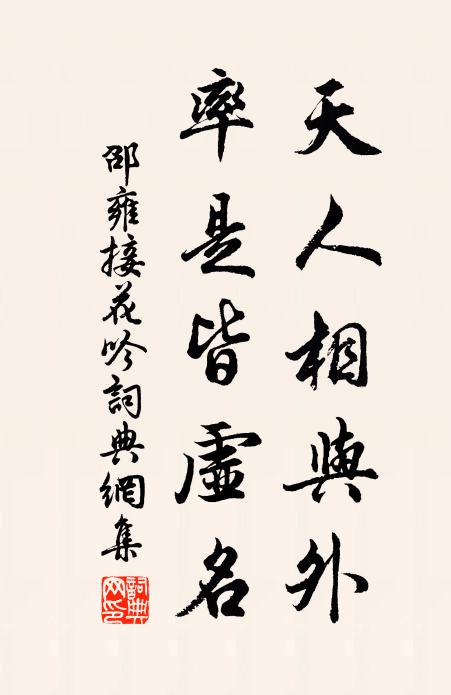 天人相與外
率是皆虛名
邵雍接花吟詞典網集
詞典网印